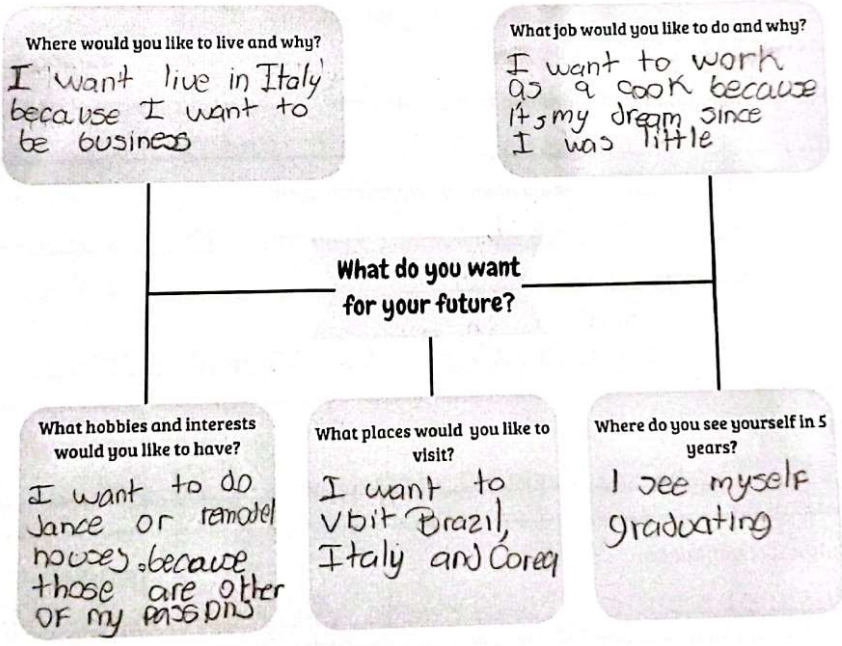 Where would you like to live and why?
I want live in Italy
because I want to
be business
What job would you like to do and why?
I want to work
as a cook because
it's my dream since
I was little
What do you want
for your future?
What hobbies and interests
would you like to have?
I want to do
dance or remodel
houses, because
those are other
of my passions
What places would you like to
visit?
I want to
visit Brazil,
Italy and Corea
Where do you see yourself in 5
years?
I see myself
graduating